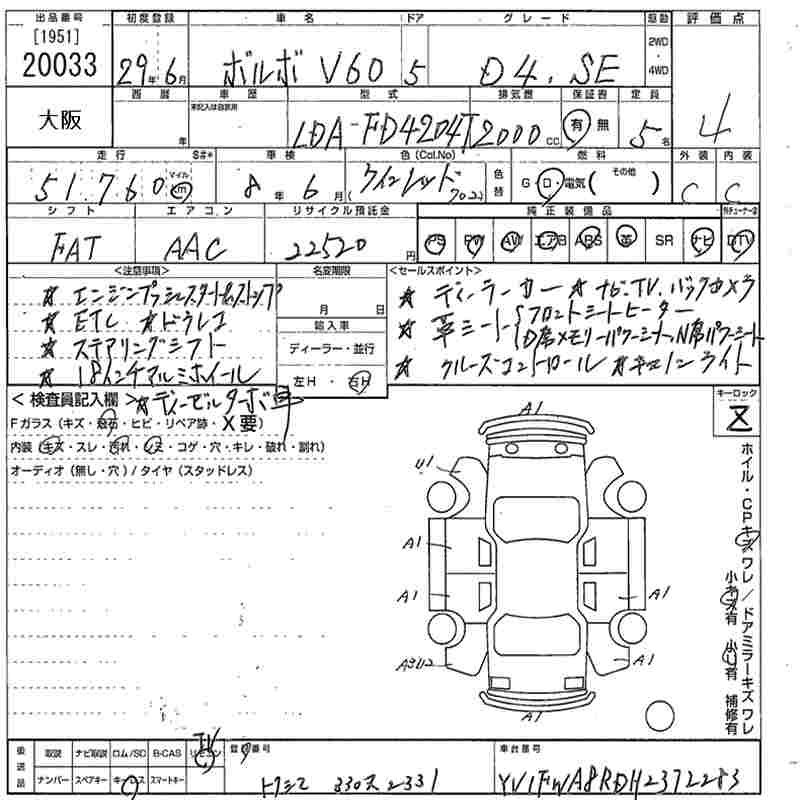 出品番号 初度登録 車名 ドア グレード 駆動 評価点
[1951]
20033 29年6月 ボルボ V60 5 D4. SE 2WD・4WD 4
大阪 西暦 車歴 型式 排気換 保証書 定員
年 未記入は自家用 LDA-FD4204T 2000cc 有 無 5名
走行 S#* 車検 色(Col.No) 燃料 外装 内装
51.760 マイル km 8年6月 ワインレッド(702) 色替 G・D・電気( その他 ) C C
シフト エアコン リサイクル預託金 純正装備品 外チューナー含
FAT AAC 22520円 PS PW AW エアB ABS 革 SR ナビ DTV
<注意事項> 名変期限 <セールスポイント>
★ エンジンプッシュスタートストップ
★ ETC ★ドラレコ
★ ステアリングシフト
★ 18インチアルミホイール
月 日
輸入車
ディーラー・並行
左H・右H
★ ディーラーカー ★ナビ.TV.バックカメラ
★ 革シート{フロントシートヒーター
D席メモリーパワーシート,N席パワーシート
★ クルーズコントロール ★キセノンライト
<検査員記入欄> ★ディーゼルターボ車
Fガラス(キズ・飛石・ヒビ・リペア跡・X要)
内装(キズ・スレ・汚れ・シミ・コゲ・穴・キレ・破れ・割れ)
オーディオ(無し・穴)/タイヤ(スタッドレス)
キーロック
A1
U1
A1
A1
A1
A1
A1
ホイル・CPキズワレ/ドアミラーキズワレ
小キズ有 小U有 補修有
後送品 取説 ナビ取説 ロム/SD B-CAS リモコン TV
ナンバー スペアキー キーレス スマートキー
登録番号 330ス2331
車台番号 YV1FWA8RDH2372283